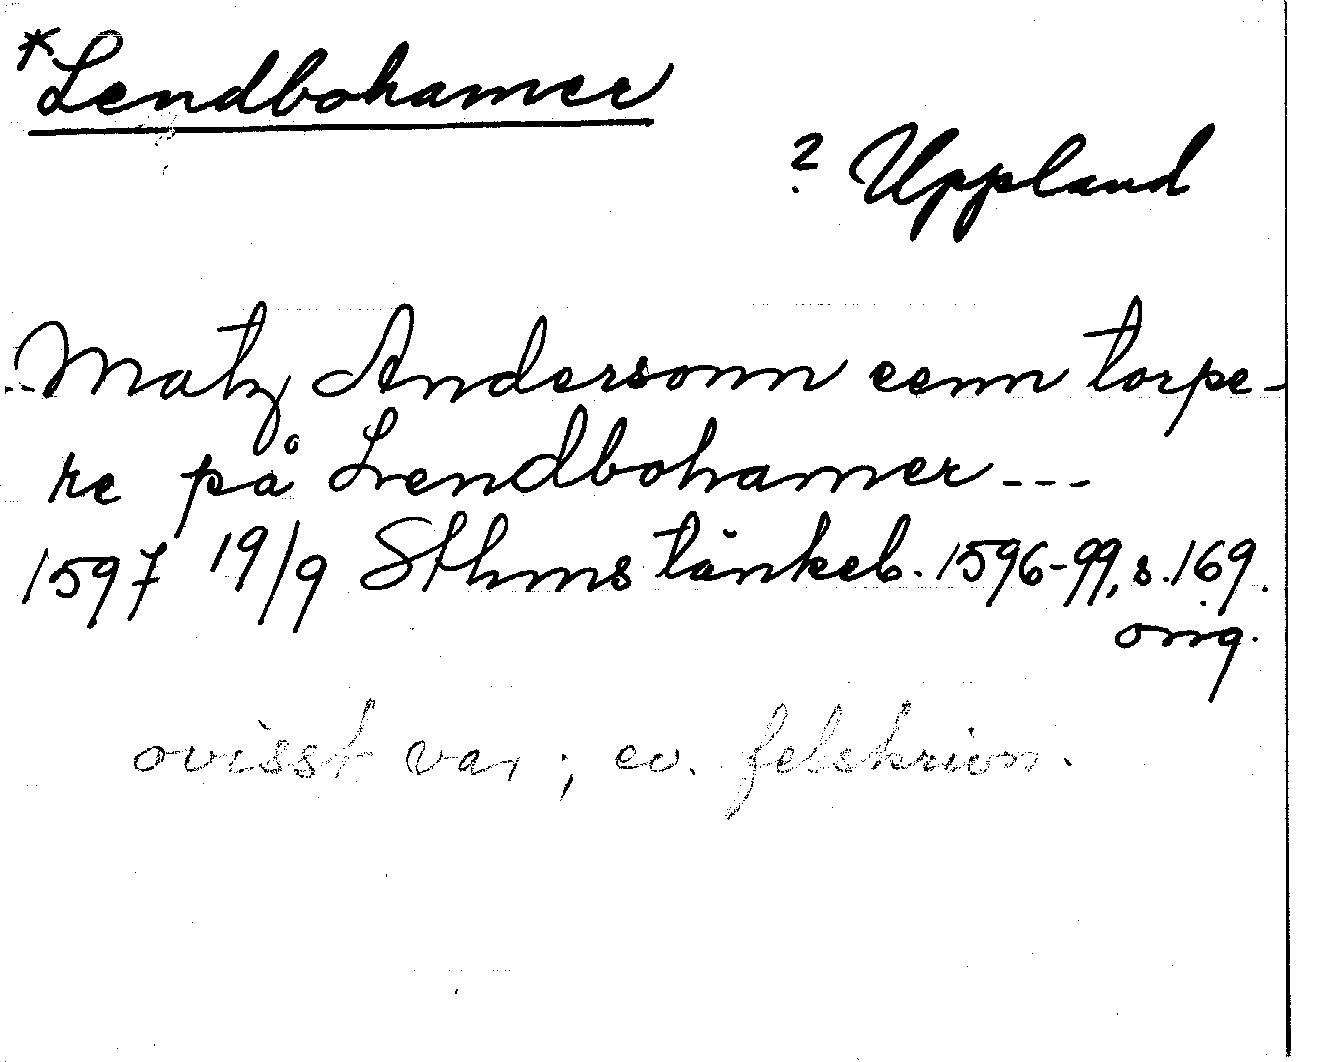 *Lendbohamer
? Uppland
Matz Andersonn eenn torpe-
re på Lendbohamer ---
1597 19/9 Sthms tänkeb. 1596-99, s. 169.
orig.
ovisst var; ev. felskrivn.